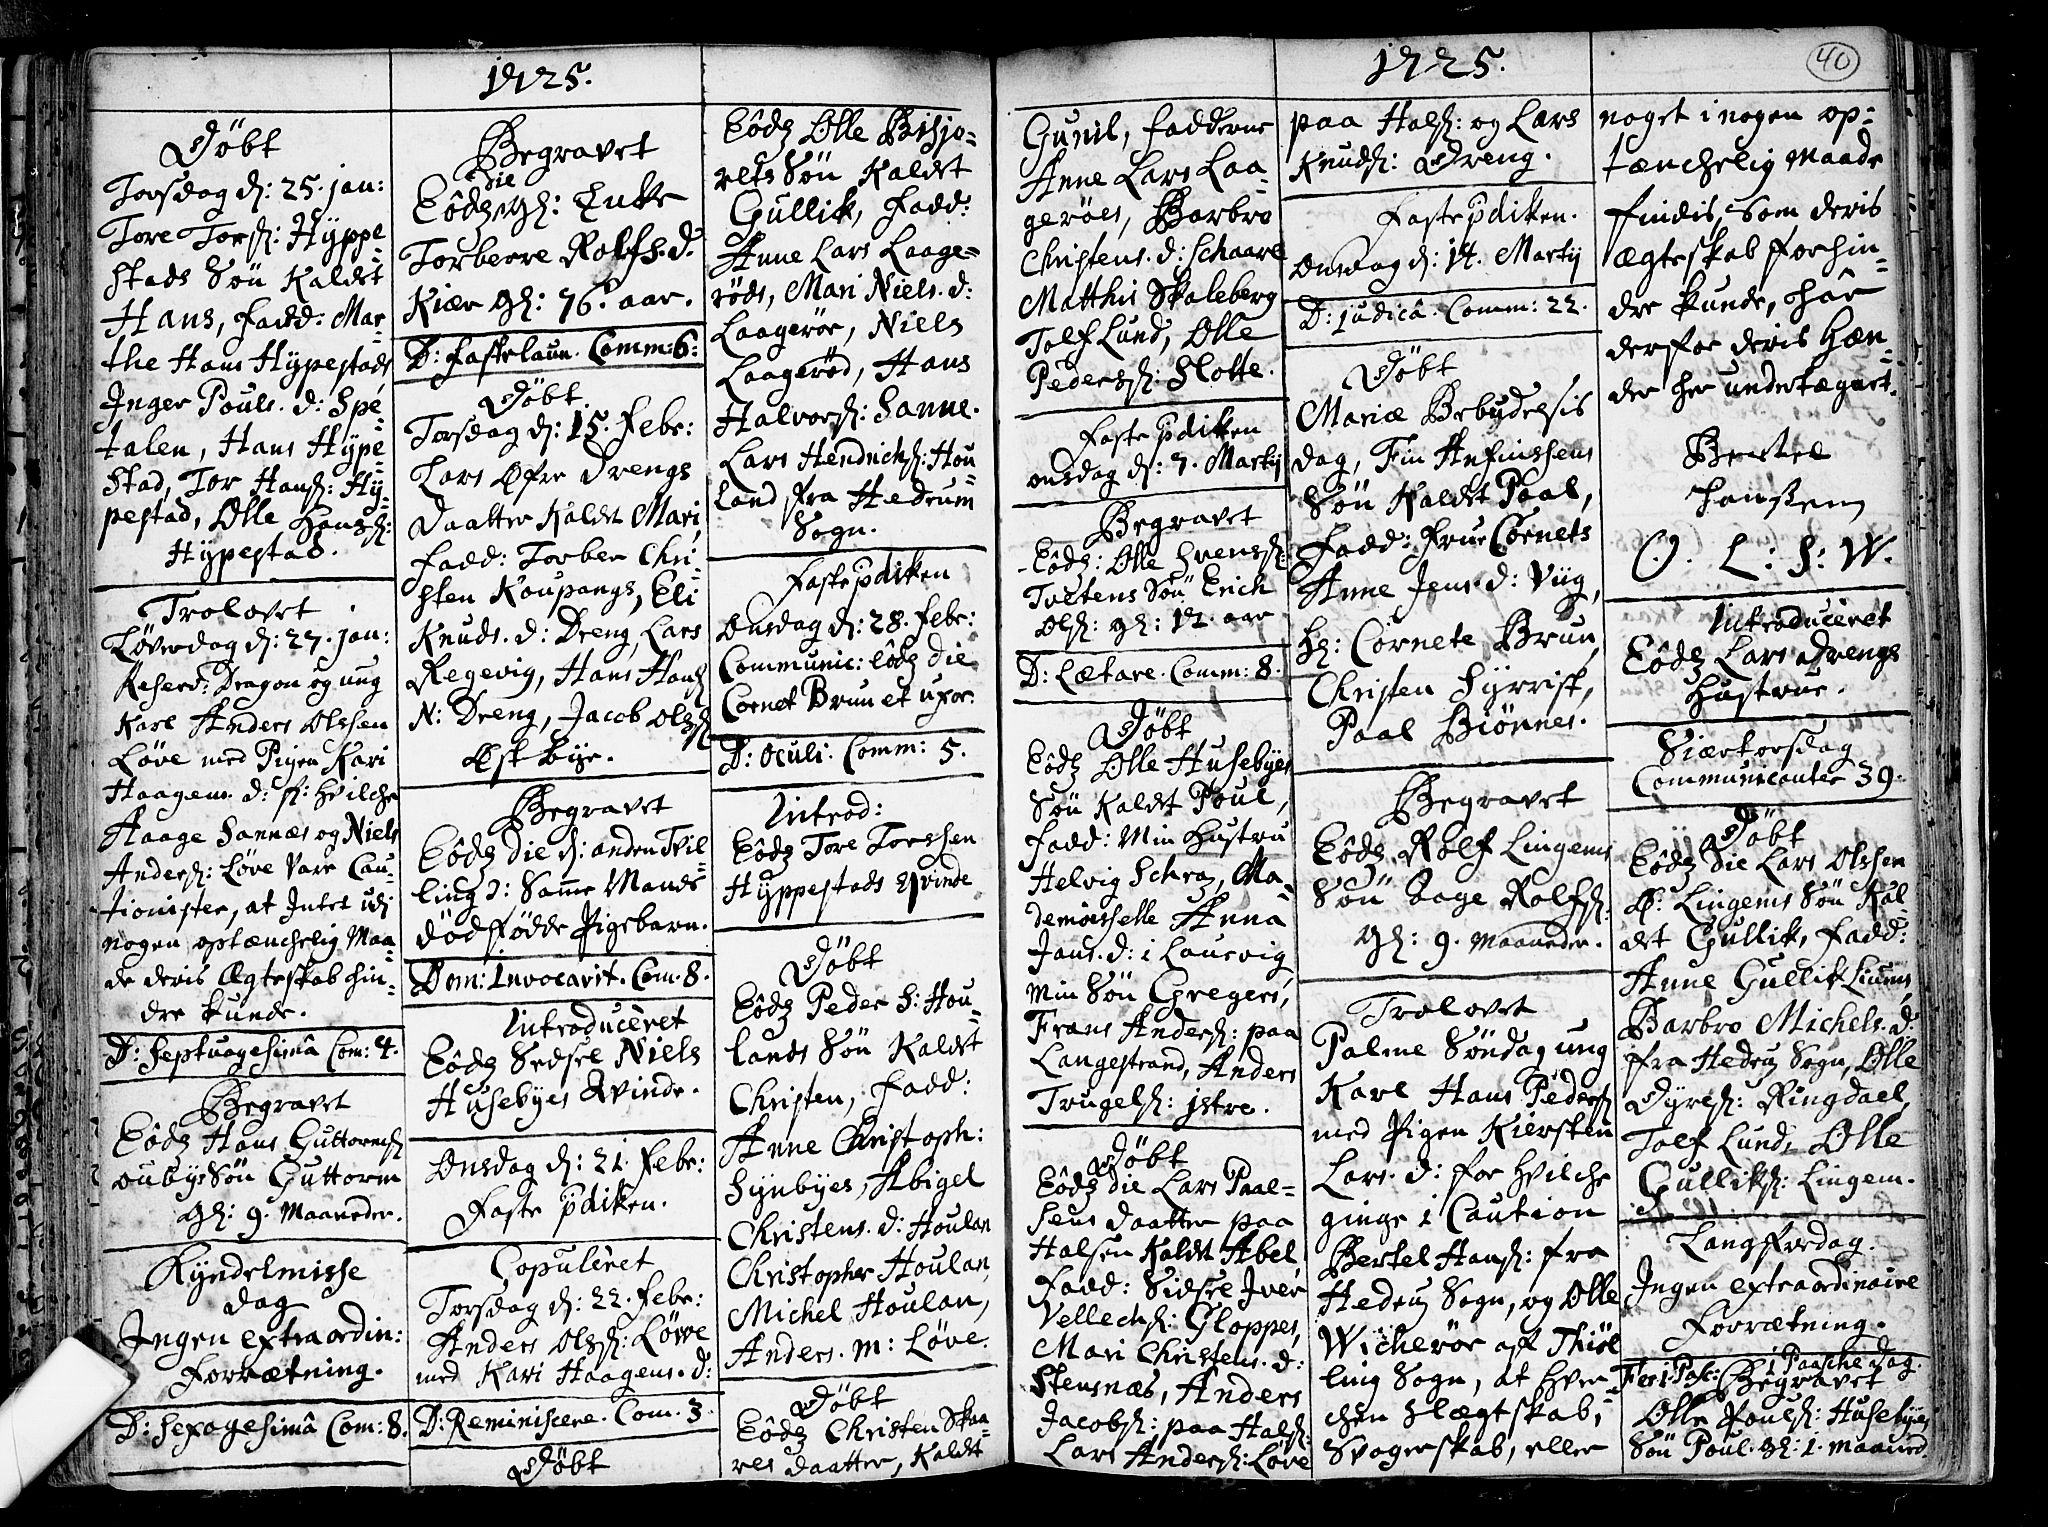 1725.
Døbt
Torsdag d: 25. jan:
Tore Tors: Hyppe
stads Søn Kaldet
Hans, Fadd: Mar-
the Hans Hypestads
Inger Pouls. d: Spe-
talen, Hans Hype-
stad, Tor Hans: Hy-
pestad, Olle Hans:
Hypestad.
Trolovet
Løverdag d: 27. jan:
Reserv: Dragon og ung
Karl Anders Olssen
Løve med Pigen Kari
Haagens. d: f: hvilche
Haage Sannæs og Niels
Anders: Løve vare Cau-
tionister, at Intet udj
nogen optænchelig Maa
de deris Ægteskab hin-
dre kunde.
D: Septuagesimâ Com: 4.
Begravet
Eôdz Hans Guttorms
oubys Søn Guttorm
Gl: 9. Maaneder.
Kyndelmisse
dag
Ingen extraordin:
Forrætning.
D: Sexagesimâ Com: 8.
Begravet
die
Eôdz gl: Enke
Torberre Rolfs. d.
Kiær gl: 76. aar.
D: Fastelaun. Comm: 6:
Døbt
Torsdag d: 15. Febr:
Lars Øfre Drengs
Daatter Kaldet Mari,
Fadd: Torber Chri-
sten Koupangs, Eli
Knuds. d: Dreng, Lars
Regevig, Hans Hans
N: Dreng, Jacob Ols
Østbye.
Begravet
Eôdz die d: anden Tvil-
ling ɔ: Samme Mands
dödfødde Pigebarn.
Dom: Invocavit. Com. 8.
Introduceret
Eôdz Sedsel Niels
Husebyes Qvinde.
Onsdag d: 21. Febr:
Faste pdiken.
Copuleret
Torsdag d: 22. Febr:
Anders Ols: Løve
med Kari Haagens. d:
D: Reminiscere. Com. 3.
Døbt
Eôdz Olle Bisjo-
rets Søn Kaldet
Gullik, Fadd:
Anne Lars Laage-
röds, Mari Niels. d:
Laagerøe, Niels
Laagerød, Hans
Halvors: Sanne.
Lars Hendrichs: Hou-
land fra Hedrum
Sogn.
Faste pdiken
Onsdag d: 28. Febr:
Communic: eôdz die
Cornet Brun et uxor.
D: Oculi. Comm: 5.
Introd:
Eôdz Tore Torssen
Hyppestads Qvinde
Døbt
Eôdz Peder S: Hou-
lands Søn Kaldet
Christen, Fadd:
Anne Christoph:
Synbyes, Abigel
Christens. d: Houlan
Christopher Houlan,
Michel Houlan,
Anders. m: Løve.
Døbt
Eôdz Christen Skaa-
res Daatter, Kaldet
1725.
40
Gunil, Fadderne
Anne Lars Laa-
gerøes, Barbro
Christens. d: Schaare
Matthis Skaleberg
Tolf Lund, Olle
Peders: Slotte.
Faste pdiken
onsdag d: 7. Martij
Begravet
Eôdz: Olle Svens:
Tvetens Søn Erich
Ols: gl: 12. aar
D: Lætare. Comm: 8.
Døbt
Eôdz Olle Husebyes
Søn Kaldet Poul,
Fadd: Min Hustru
Helvig Schrøz, Ma-
demoiselle Anna
Jans. d: i Laurvig
Min Søn Gregers,
Frans Anders: paa
Langestrand, Anders
Trugels: jstre.
Døbt
Eôdz die Lars Paal-
sens Daatter paa
Halsen Kaldet Abel
Fadd: Sidsel Iver
Vellechs: Gloppes,
Mari Christens. d:
Stensnæs, Anders
Jacobs: paa Hals:
Lars Anders: Løve
paa Hals: og Lars
Knuds: Dreng.
Faste pdiken.
Onsdag d: 14. Martij
D: judicâ. Comm: 22.
Døbt
Mariæ Bebudelsis
dag, Fin Anfinssens
Søn Kaldet Paal,
Fadd: Frue Cornets
Anne Jens. d: Viig,
Hr: Cornete Brun,
Christen Syrrist,
Paal Biønnes.
Begravet
Eôdz Rolf Lingems
Søn Aage Rolfs:
Gl: 9. Maaneder.
Trolovet
Palme Søndag ung
Karl Hans Peders
med Pigen Kiersten
Lars. d: for hvilche
ginge i Caution
Bertel Hans: fra
Hedrz Sogn, og Olle
Wicherøe af Thiøl
ling Sogn, at hver-
chen Slægtskab,
Svogerskab, eller
noget i nogen op-
tænchelig Maade
findis, Som deris
Ægteskab forhin-
dre kunde, har
derfor deris Hæn-
der her undertægnet.
Bertel
Hanssen
O. L: S: W.
Introduceret
Eôdz Lars Drengs
Hustrue.
Skiærtorsdag
Communicanter 39.
Døbt
Eôdz die Lars Olssen
Ø: Lingems Søn Kal-
det Gullik, Fadd:
Anne Gullik Liems,
Barbro Michels. d:
fra Hedrz Sogn, Olle
Dyres: Ringdael,
Tolf Lund, Olle
Gulliks: Lingem.
Langfredag.
Ingen extraordinaire
Forrætning.
Fer: 1. Pasc: 1 Paasche dag.
Begravet
Olle Pouls: Husebyes
Søn Poul. gl: 1. maaned.